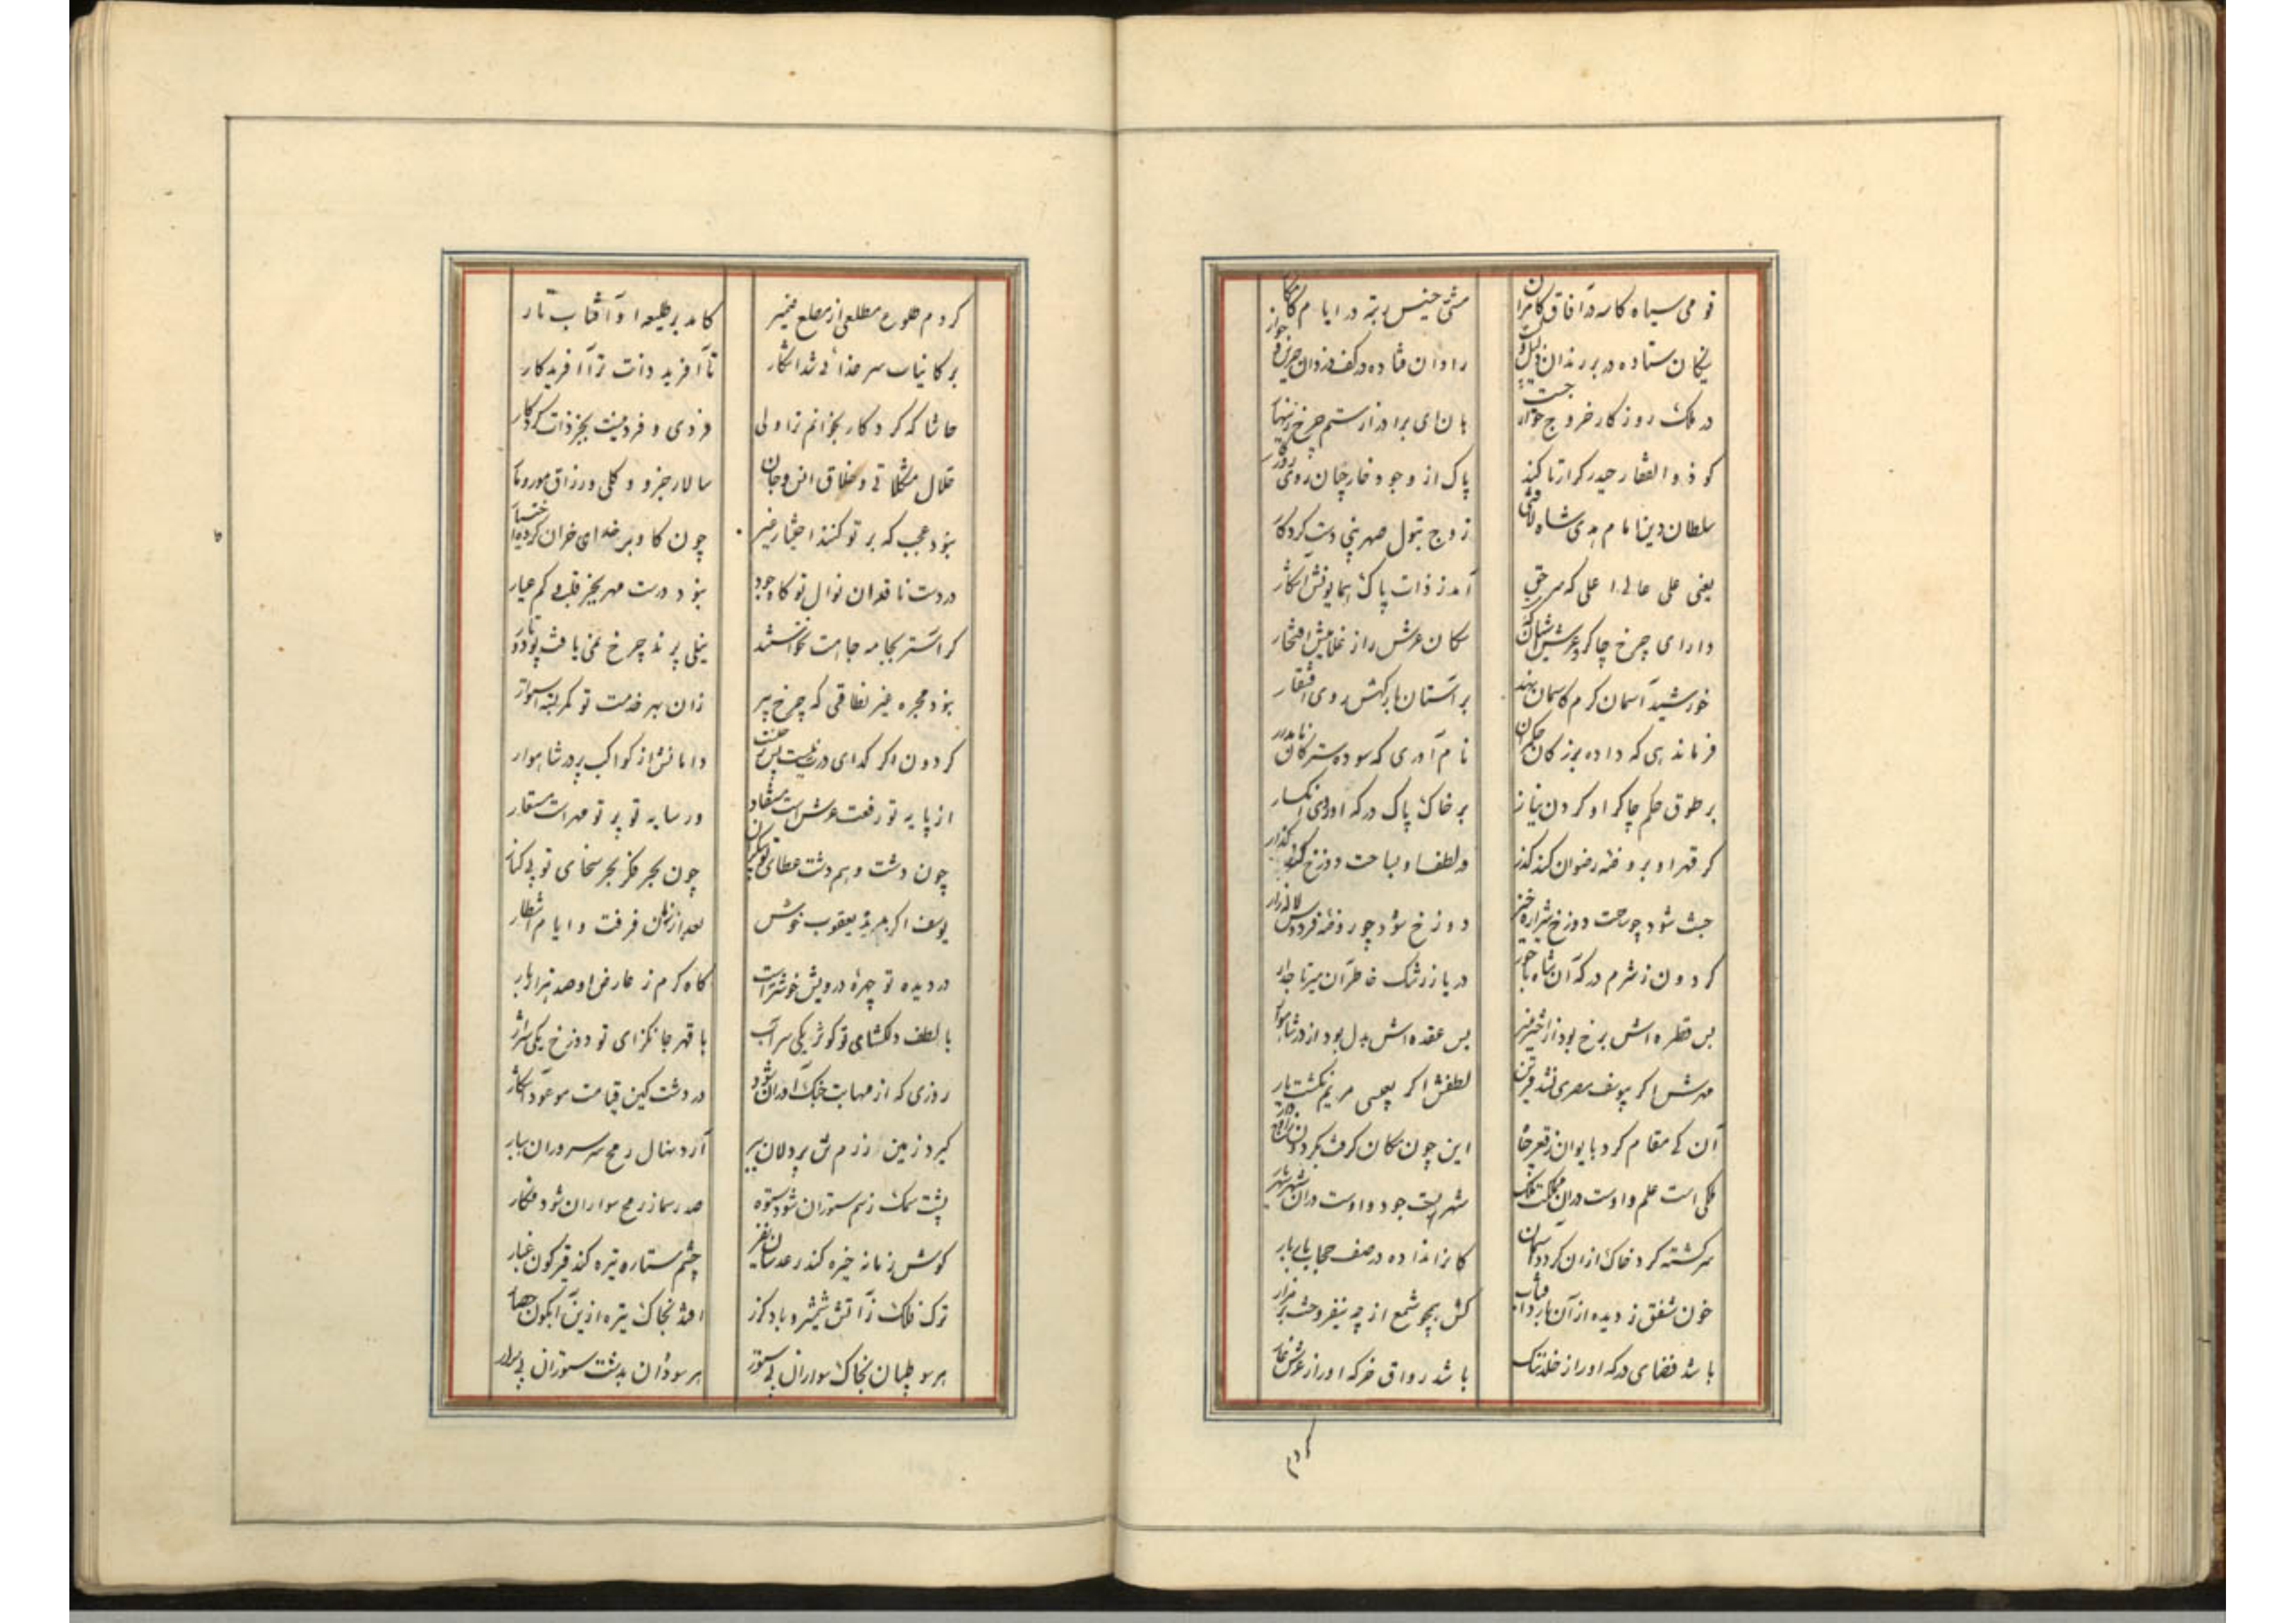 قومی سیاه کاسه در آفاق کامران
مشتی خسیس رتبه در ایام کامکار
نیکان ستاده در بر رندان ذلیل
رادان فتاده در کف دزدان
در ملک روزگار خروج
هان ای برادر از ستم چرخ زینهار
کو ذوالفقار حیدر کرار تا کند
پاک از وجود خارجیان روی روزگار
سلطان دین امام هدی شاه لافتی
زوج بتول صهر نبی دست کردگار
یعنی علی عالی اعلی که سر حق
آمد ز ذات پاک همایونش آشکار
دارای چرخ چاکر و عرش آشیان که
سکان عرش راز غلامیش افتخار
خورشید آسمان کرم کاسمان نهد
بر آستان بارگهش روی افتقار
فرماندهی که داده بزرگان حکمران
نام آوری که سوده سترکان نامدار
بر طوق حکم چاکر او گردن نیاز
بر خاک پاک درگه او روی انکسار
گر قهر او بروضه رضوان کند گذر
ور لطف او بساحت دوزخ کند گذار
جنت شود چو ساحت دوزخ شراره خیز
دوزخ شود چو روضه فردوس لاله زار
گردون ز شرم درگه آن شاه
دریا ز رشک خاطر آن میر تاجدار
بس قطره اش برخ بود از اختر منیر
بس عقده اش بدل بود از در شاهوار
مهرش اگر بیوسف مصری نشد قرین
لطفش اگر بعیسی مریم نگشت یار
آن کی مقام کرد بایوان ز قعر چاه
این چون مکان گرفت بگردون
ملکی است علم و اوست در آن مملکت ملک
شهریست جود و اوست در آن شهر شهریار
سرگشته گرد خاک از آن گردد آسمان
کانرا نداده در صف حجاب بار بار
خون شفق ز دیده از آن بارد آفتاب
کش همچو شمع از چه نیفروخت بر مزار
باشد فضای درگه او را ز خلد ننگ
باشد رواق خرگه او را ز عرش عار
کردم
کردم طلوع مطلعی از مطلع ضمیر
کامد بر طلیعه او آفتاب تار
بر کائنات سر خدائی شد آشکار
تا آفرید ذات ترا آفریدگار
حاشا که کردگار بخوانم ترا ولی
فردی و فرد نیست بجز ذات کردگار
حلال مشکلاتی و خلاق انس و جان
سالار جزو و کلی و رزاق مور و مار
نبود عجب که بر تو کنند اختیار غیر
چون گاو بر خدای خران کرده اختیار
در دست ناقدان نوال تو کاوجود
نبود درست مهر بجز قلب کم عیار
کر استر بجامه جاهت نخواستند
نیلی پرند چرخ نمی یافت پود و تار
نبود مجره غیر نطاقی که چرخ پیر
زان بهر خدمت تو کمر بسته استوار
گردون اگر گدای درت نیست پس ز چیست
دامانش از کواکب پر در شاهوار
از پایه تو رفعت عرش است مستفاد
در سایه تو پرتو مهر است مستعار
چون دشت وهم دشت عطای تو بیکران
چون بحر فکر بحر سخای تو بی کنار
یوسف اگر بدیده یعقوب خوش
بعد از زمان فرقت و ایام انتظار
در دیده تو چهره درویش خوشتر است
گاه کرم ز عارض او صد هزار بار
با لطف دلگشای تو کوثر یکی سراب
با قهر جانگزای تو دوزخ یکی شرار
روزی که از مهابت جنگ آوران شود
در دشت کین قیامت موعود آشکار
گیرد زمین رزم تن پر دلان ببر
آرد نهال رمح سر سروران ببار
پشت سمک ز سم ستوران شود ستوه
صدر سما ز رمح سواران شود فکار
گوش زمانه خیره کند رعدسان نفیر
چشم ستاره تیره کند قیرگون غبار
ترک فلک ز آتش شمشیر و باد گرز
افتد بخاک تیره ازین آبگون حصار
هر سو طپان بخاک سواران بی ستور
هر سو دوان بدشت ستوران بی سوار